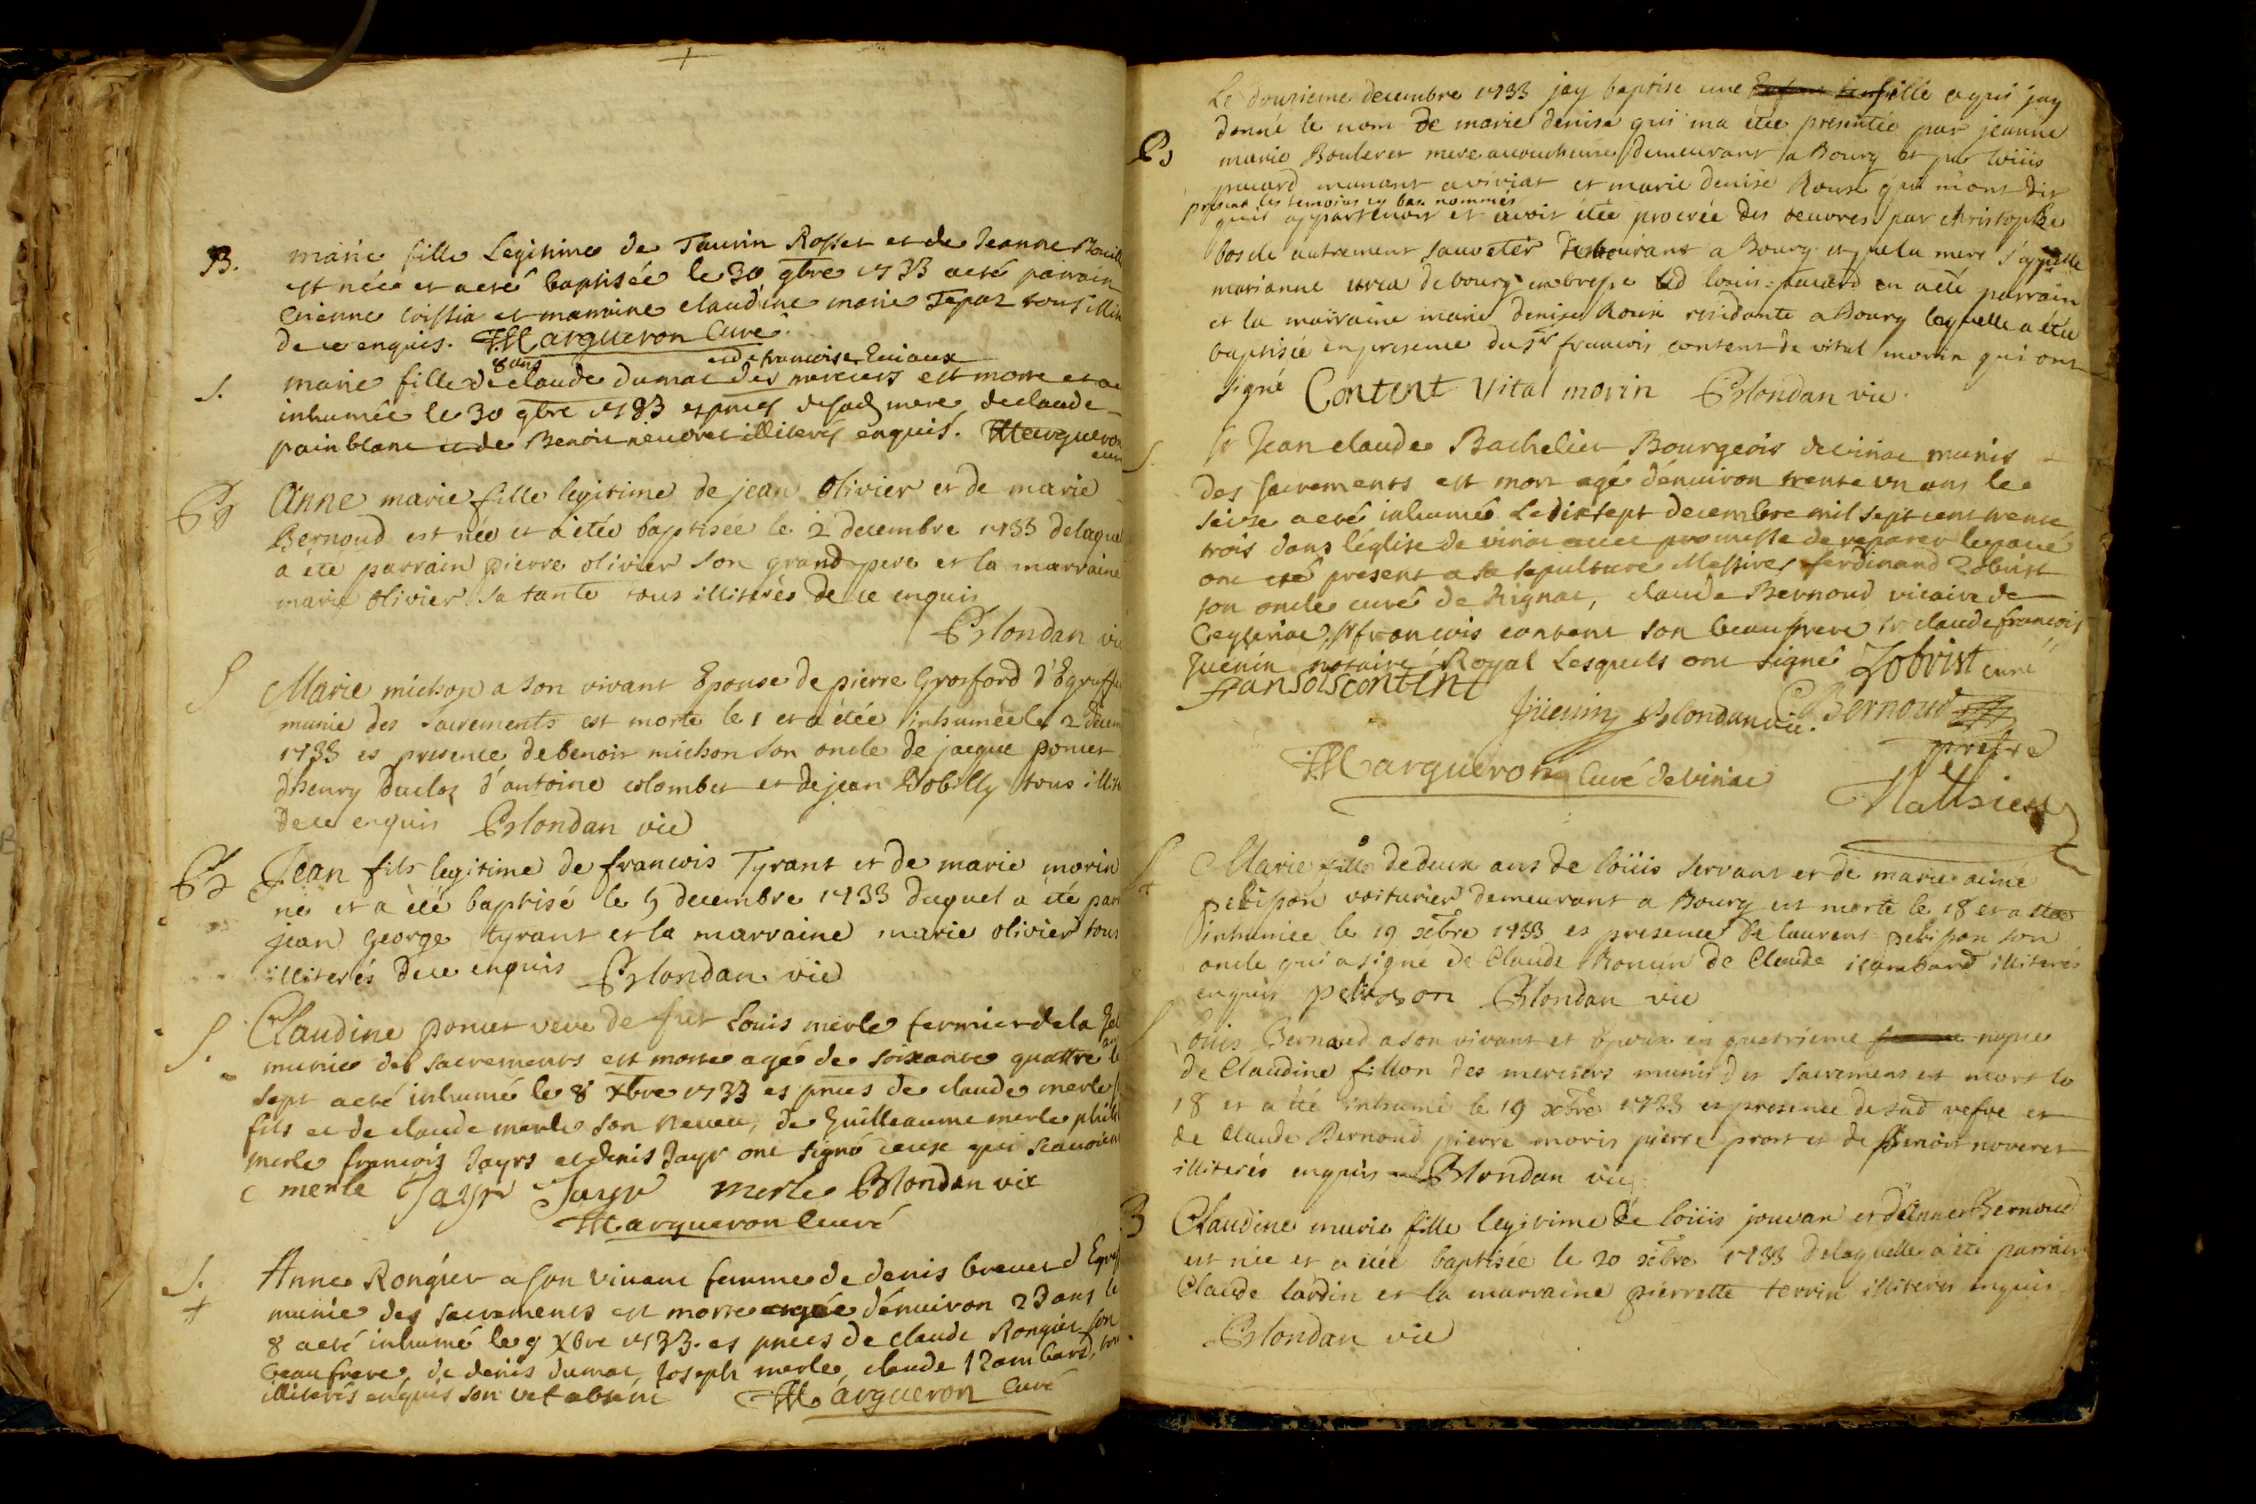 B. marie fille Legitime de Taurin Rosset et de Jeanne
est née et a eté baptisée le 30 9bre 1733 a eté parrain
Etienne et marraine claudine marie Tepaz tous
de ce enquis. Margueron Curé
8 ans et de francoise
S. marie fille de claude dumac des merciers est morte et a
inhumée le 30 9bre 1733 es mere de claude
painblanc et de Benoit illiterés enquis. Margueron
curé
B Anne marie fille legitime de jean olivier et de marie
Bernoud est née et a étée baptisée le 2 decembre 1733 delaque
a été parrain pierre olivier son grand pere et la marraine
marie olivier sa tante tous illiterés de ce enquis
Blondan vic
S Marie michon a son vivant Epouse de pierre Grosford d'
munie des sacrements est morte le 1 et a étée inhumée le 2 decem
1733 es presence de benoit michon son oncle de jacque poncet
d'henry Duclos d'antoine colombet et de jean Bobilly tous illit
de ce enquis Blondan vic
B Jean fils legitime de francois Tyrant et de marie morin
né et a été baptisé le 5 decembre 1733 duquel a été par
jean george tyrant et la marraine marie olivier tous
illiterés de ce enquis Blondan vic
S. Claudine poncet veve de fut Louis merle fermier de la
munie des sacrements est morte agé de soixante quattre ans le
sept a eté inhumé le 8 xbre 1733 es pnces de claude merle
fils et de claude merle son neveu, de Guilleaume merle
merle francois Jayrs et denis Jayr ont signé ceux qui
merle Jayr Jayr merle Blondan vic
Margueron Curé
S. Anne Rongier a son vivant femme de denis brevet d
+ munie des sacrements est morte agée d'environ 23 ans le
8 a eté inhumé le 9 Xbre 1733. es pnces de claude Rongier son
beaufrere, de denis dumac, Joseph merle, claude
illiterés enquis son absent Margueron Curé
Le douzieme decembre 1733 jay baptise une fille a qui jay
donné le nom de marie denise qui ma etée presentée par jeanne
B marie Bouleret mere acoucheuse demeurant a Bourg et par loüis
pacard manant a viriat et marie denise Roux qui m'ont dit
present les temoins cy bas nommés
quil appartenoit et avoit étée procrée des oeuvres par christophle
autrement sauveter a Bourg et que la mere s'appelle
marianne de bourg en bresse led louis pacard en a été parrain
et la marraine marie denise Roux residante a Bourg laquelle a étée
baptisée en presence du Sr francois content de vital morin qui ont
signé Content Vital morin Blondan vic.
S. Sr Jean claude Bachelier Bourgeois de virac munis
des sacrements est mort agé d'environ trente un ans le
seize a eté inhumé Le dix sept decembre mil sept cent trente
trois dans l'église de virac avec promesse de reparer le pavé
ont eté present a sa sepulture Messires ferdinand Zobrist
son oncle curé de Rignat, claude Bernoud vicaire de
Ceyseriac, Sr francois content son beaufrere Sr claude francois
Guenin notaire Royal Lesquels ont signé Zobrist curé
fransois content
Guenin Blondan vic. C Bernoud
prestre
Margueron Curé de virac
Mathieu
S Marie fille de deux ans de loüis servant et de marie aimé
+ pelisson voiturier demeurant a Bourg est morte le 18 et a étée
inhumée le 19 xbre 1733 es presence de laurent pelisson son
oncle qui a signé de Claude Boncin de Claude illiterés
enquis pelisson Blondan vic
S Louis Bernard a son vivant et epoux en quatrieme nopce
de Claudine fillon des merciers munis des sacremens est mort le
18 et a été inhumé le 19 xbre 1733 es presence de sad vefve et
de Claude Bernoud pierre morin pierre prost et de Benoit noveret
illiterés enquis Blondan vic
B Claudine marie fille legitime de loüis jouvan et d'anne Bernoud
est née et a étée baptisée le 20 xbre 1733 de laquelle a été parrain
Claude lardin et la marraine pierrette terrin illiterés enquis
Blondan vic